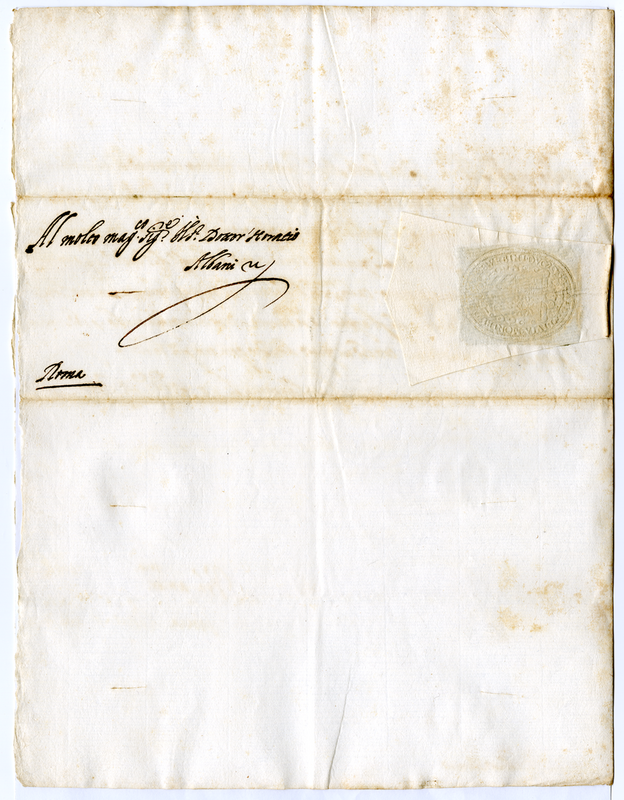 Al molto mag.co Sig.re il S.r Dottor Horatio
Albani
Roma